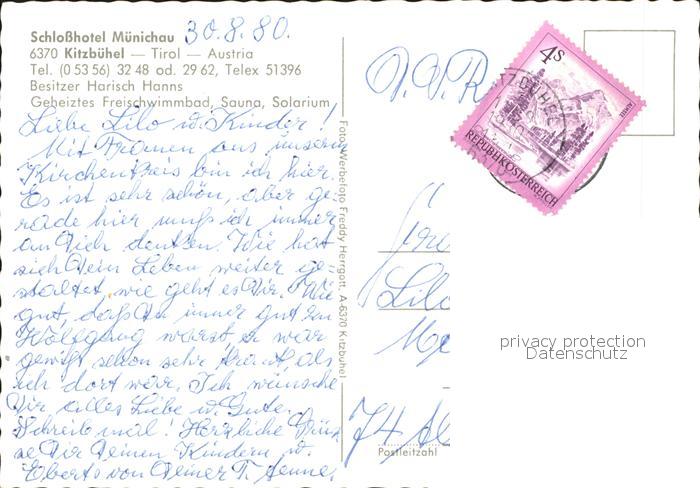 Schloßhotel Münichau 30.8.80.
6370 Kitzbühel — Tirol — Austria
Tel. (0 53 56) 32 48 od. 29 62, Telex 51396
Besitzer Harisch Hanns
Geheiztes Freischwimmbad, Sauna, Solarium
Liebe Lilo u. Kinder!
Mit Frauen aus unserm
Kirchenkreis bin ich hier.
Es ist sehr schön, aber ge-
rade hier muß ich immer
an Dich denken. Wie hat
sich Dein Leben weiter ge-
staltet, wie geht es Dir. Wie
gut, daß Du immer gut zu
Wolfgang warst, er war
gewiß schon sehr krank als
ich dort war. Ich wünsche
Dir alles Liebe u. Gute.
Schreib mal! Herzliche Grüs-
se Dir Deinen Kindern u.
Eberts von Deiner T. Henne.
Foto/Werbefoto Freddy Herrgott, A-6370 Kitzbühel
4S
REPUBLIK ÖSTERREICH
Lilo
74
Postleitzahl
privacy protection
Datenschutz